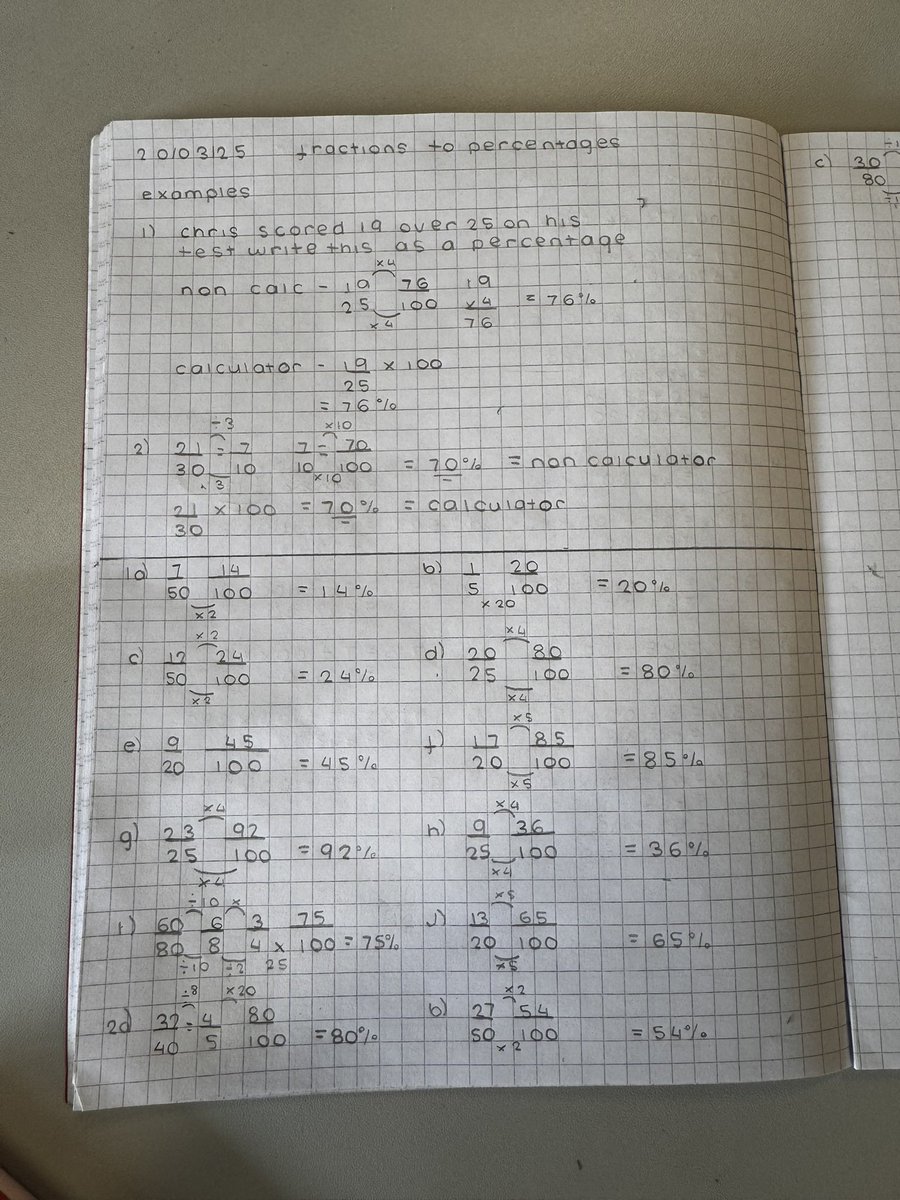 20/03/25 fractions to percentages
examples
1) chris scored 19 over 25 on his
test write this as a percentage
×4
non calc - 19/25 76/100 19 ×4 76 = 76%
×4
calculator - 19/25 × 100
= 76%
÷3 ×10
2) 21/30 = 7/10 7/10 = 70/100 = 70% = non calculator
÷3 ×10
21/30 × 100 = 70% = calculator
1a) 7/50 14/100 = 14% b) 1/5 20/100 = 20%
×2 ×20
×2 ×4
c) 12/50 24/100 = 24% d) 20/25 80/100 = 80%
×2 ×4
×5
e) 9/20 45/100 = 45% f) 17/20 85/100 = 85%
×5
×4 ×4
g) 23/25 92/100 = 92% h) 9/25 36/100 = 36%
×4 ×4
÷10 × ×5
i) 60/80 6/8 3/4 × 75/100 = 75% j) 13/20 65/100 = 65%
÷10 ÷2 25 ×5
÷8 ×20 ×2
2a) 32/40 = 4/5 80/100 = 80% b) 27/50 54/100 = 54%
×2
c) 30/80